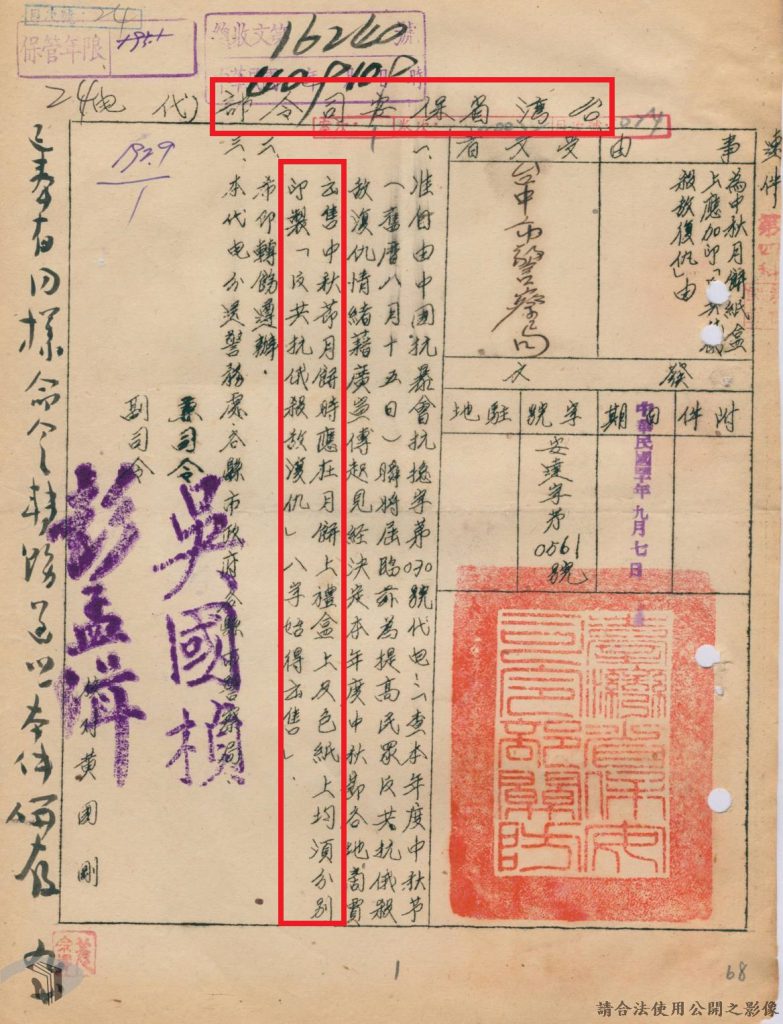 目次號：24
保管年限
總收文第16240號
台灣省保安司令部（代电）
24
案件
事由
為中秋月餅紙盒
上應加印「
殺敌復仇」由
受文者
台中市警察局
發文
附件
日期
中華民國 年九月七日
字號
安達字第0561號
駐地
臺灣省保安司令部關防
一、准自由中國抗暴會抗總字第030號代电：「查本年度中秋节
（舊曆八月十五日）瞬將屆臨茲為提高民眾反共抗俄殺
敌復仇情緒藉廣宣傳起見経決定本年度中秋節各地商賈
出售中秋節月餅時應在月餅上禮盒上及色紙上均須分別
印製「反共抗俄殺敌復仇」八字始得出售」。
二、希即轉飭遵辦。
三、本代电分送警務處各縣市政府各縣市警察局
兼司令 吳國楨
副司令 彭孟緝
校对黃國剛
1929
1
1
68
請合法使用公開之影像